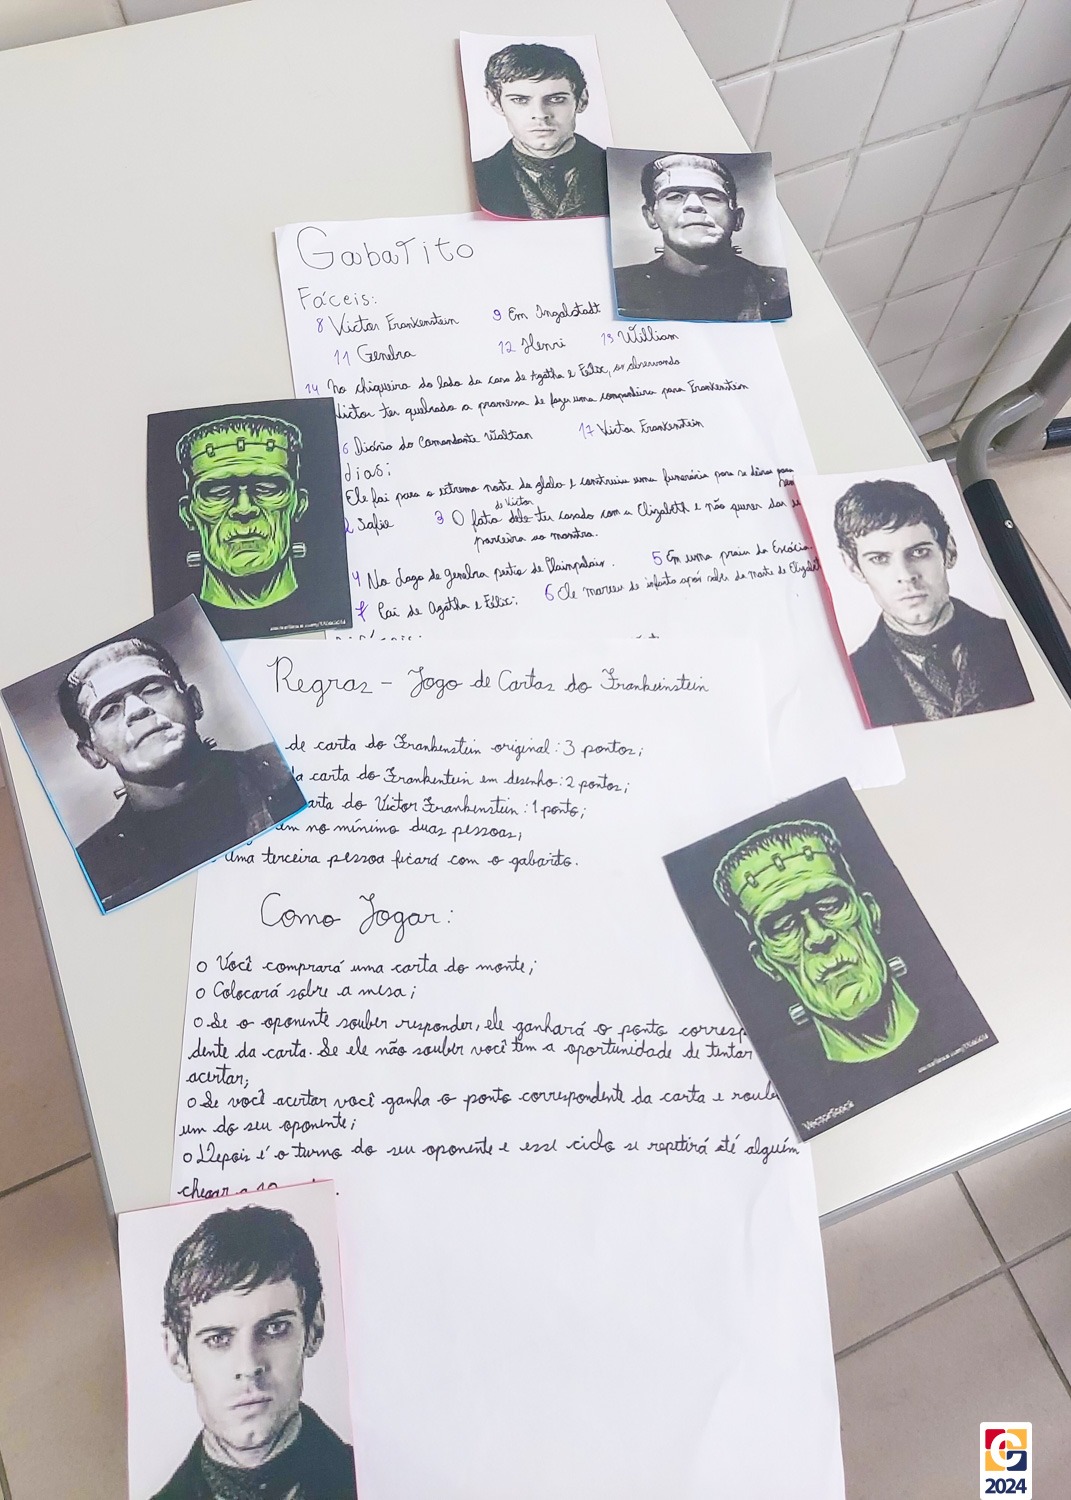 Gabarito
Fáceis:
8 Victor Frankenstein 9 Em Ingolstadt
11 Genebra 12 Henri 13 William
14 No chiqueiro do lado da casa de Agatha e Felix, os observando
Victor ter quebrado a promessa de fazer uma companheira para Frankenstein
6 Diário do Comandante Waltan 17 Victor Frankenstein
dias:
Ele foi para o extremo norte do globo e construiu uma funerária para se deixar
2 Safie 3 O fato dele ter casado com a Elizabeth e não querer dar
de Victor
parceira ao monstro.
4 No Lago de genebra perto de Plainpalair. 5 Em uma praia da Escócia.
7 Pai de Agatha e Félix; 6 Ele morreu de infarto após saber da morte de
Regras - Jogo de Cartas do Frankeinstein
de carta do Frankenstein original: 3 pontos;
da carta do Frankentein em desenho: 2 pontos;
carta do Victor Frankenstein: 1 ponto;
no mínimo duas pessoas;
uma terceira pessoa ficará com o gabarito.
Como Jogar:
o Você comprará uma carta do monte;
o Colocará sobre a mesa;
o Se o oponente souber responder, ele ganhará o ponto corresp
dente da carta. Se ele não souber você tem a oportunidade de tentar
acertar;
o Se você acertar você ganha o ponto correspondente da carta e
um do seu oponente;
o Depois é o turno do seu oponente e esse ciclo se repetirá até alguém
chegar a 10
Vecportland
2024